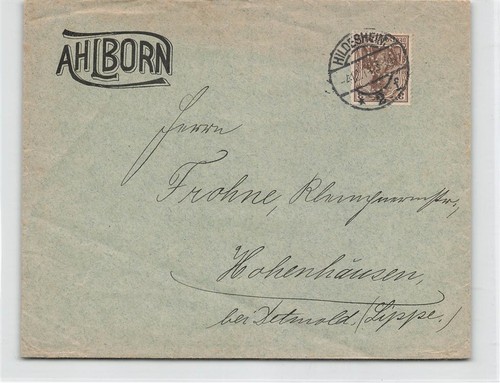 AHLBORN
HILDESHEIM
2
Herrn
Frohne, Klempnermstr.,
Hohenhausen,
bei Detmold. (Lippe.)